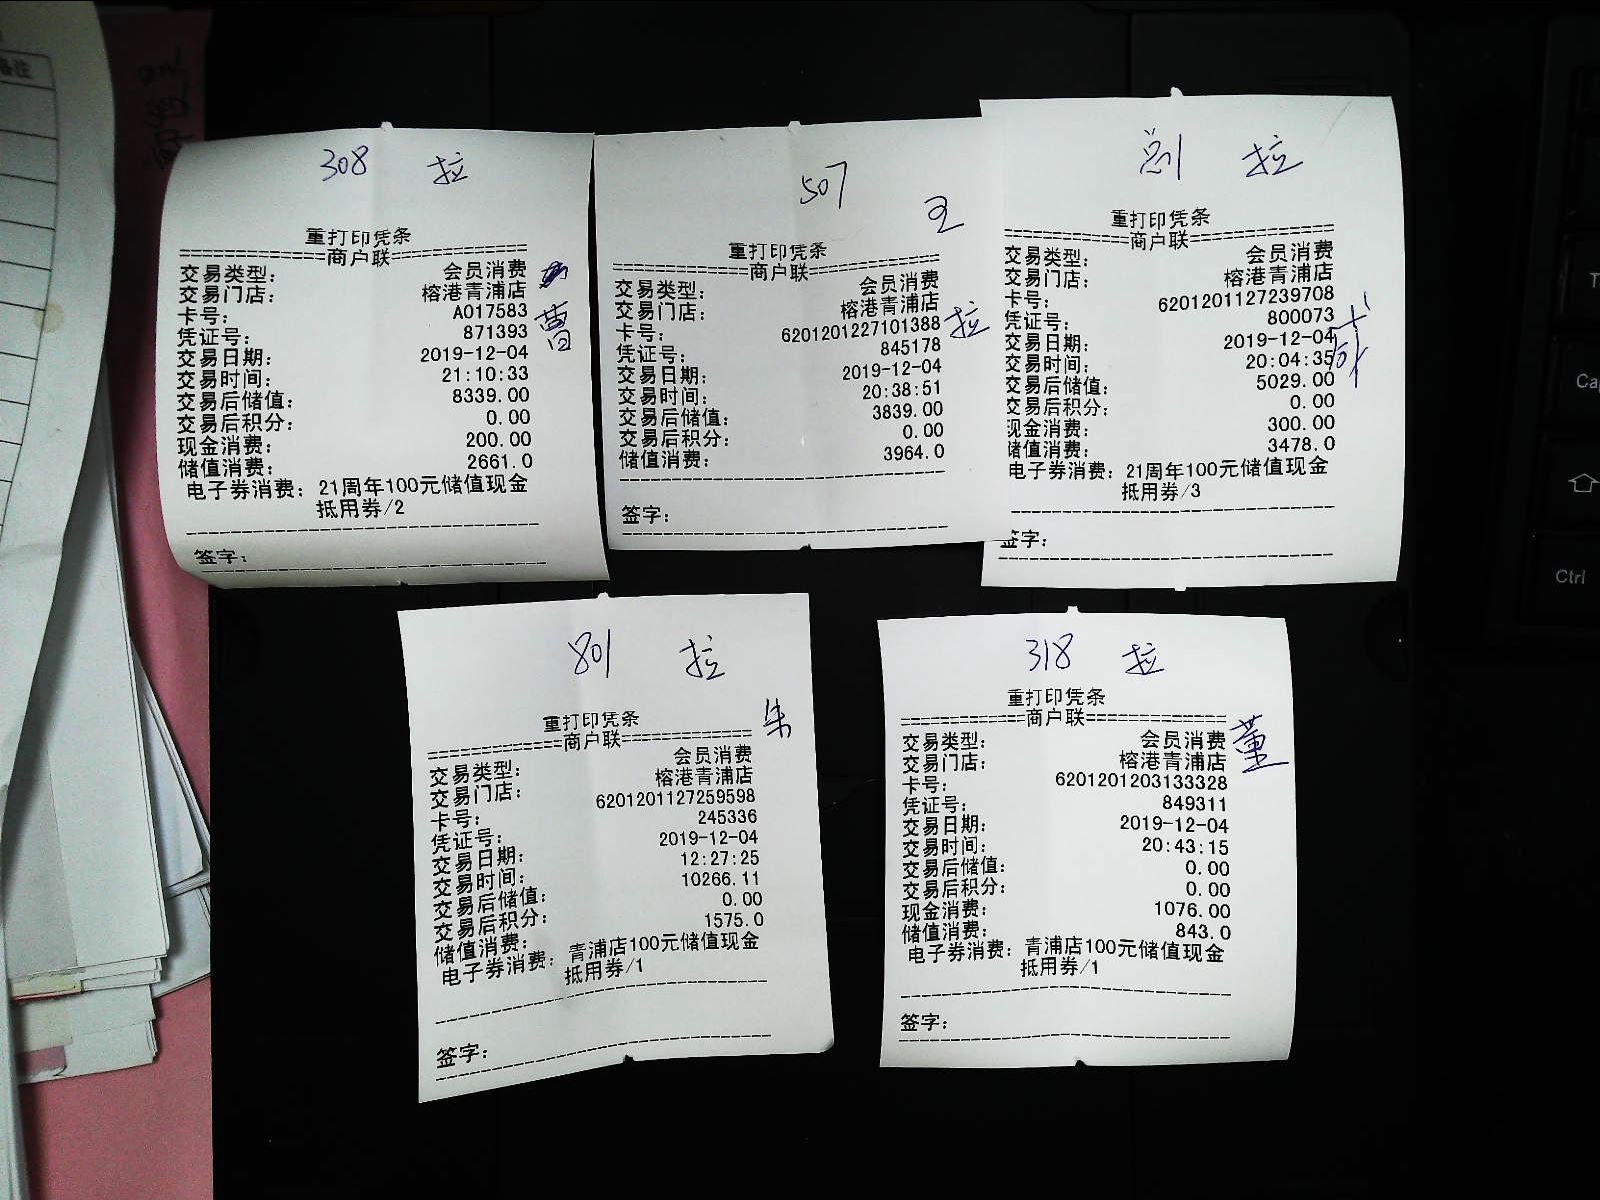 备注
308 拉
重打印凭条
============商户联============
交易类型: 会员消费
交易门店: 榕港青浦店
卡号: A017583
曹
凭证号: 871393
交易日期: 2019-12-04
交易时间: 21:10:33
交易后储值: 8339.00
交易后积分: 0.00
现金消费: 200.00
储值消费: 2661.0
电子券消费: 21周年100元储值现金
抵用券/2
签字:
507
王
重打印凭条
============商户联============
交易类型: 会员消费
交易门店: 榕港青浦店
卡号: 6201201227101388
拉
凭证号: 845178
交易日期: 2019-12-04
交易时间: 20:38:51
交易后储值: 3839.00
交易后积分: 0.00
储值消费: 3964.0
签字:
拉
重打印凭条
============商户联============
交易类型: 会员消费
交易门店: 榕港青浦店
卡号: 6201201127239708
凭证号: 800073
交易日期: 2019-12-04
交易时间: 20:04:35
交易后储值: 5029.00
交易后积分: 0.00
现金消费: 300.00
储值消费: 3478.0
电子券消费: 21周年100元储值现金
抵用券/3
签字:
801 拉
重打印凭条
朱
============商户联============
交易类型: 会员消费
交易门店: 榕港青浦店
卡号: 6201201127259598
凭证号: 245336
交易日期: 2019-12-04
交易时间: 12:27:25
交易后储值: 10266.11
交易后积分: 0.00
储值消费: 1575.0
电子券消费: 青浦店100元储值现金
抵用券/1
签字:
318 拉
重打印凭条
============商户联============
董
交易类型: 会员消费
交易门店: 榕港青浦店
卡号: 6201201203133328
凭证号: 849311
交易日期: 2019-12-04
交易时间: 20:43:15
交易后储值: 0.00
交易后积分: 0.00
现金消费: 1076.00
储值消费: 843.0
电子券消费: 青浦店100元储值现金
抵用券/1
签字:
Ctrl